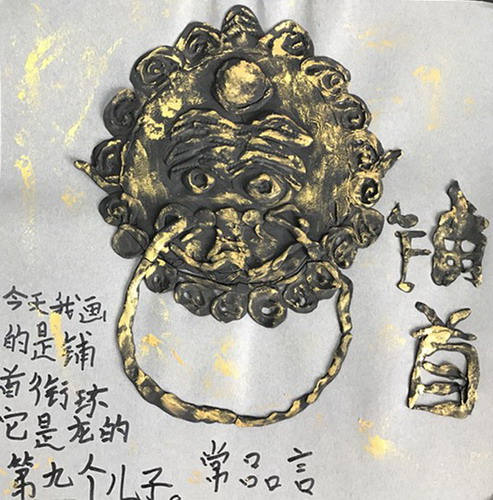 铺首
今天我画
的是铺
首衔环
它是龙的
第九个儿子。
常品言